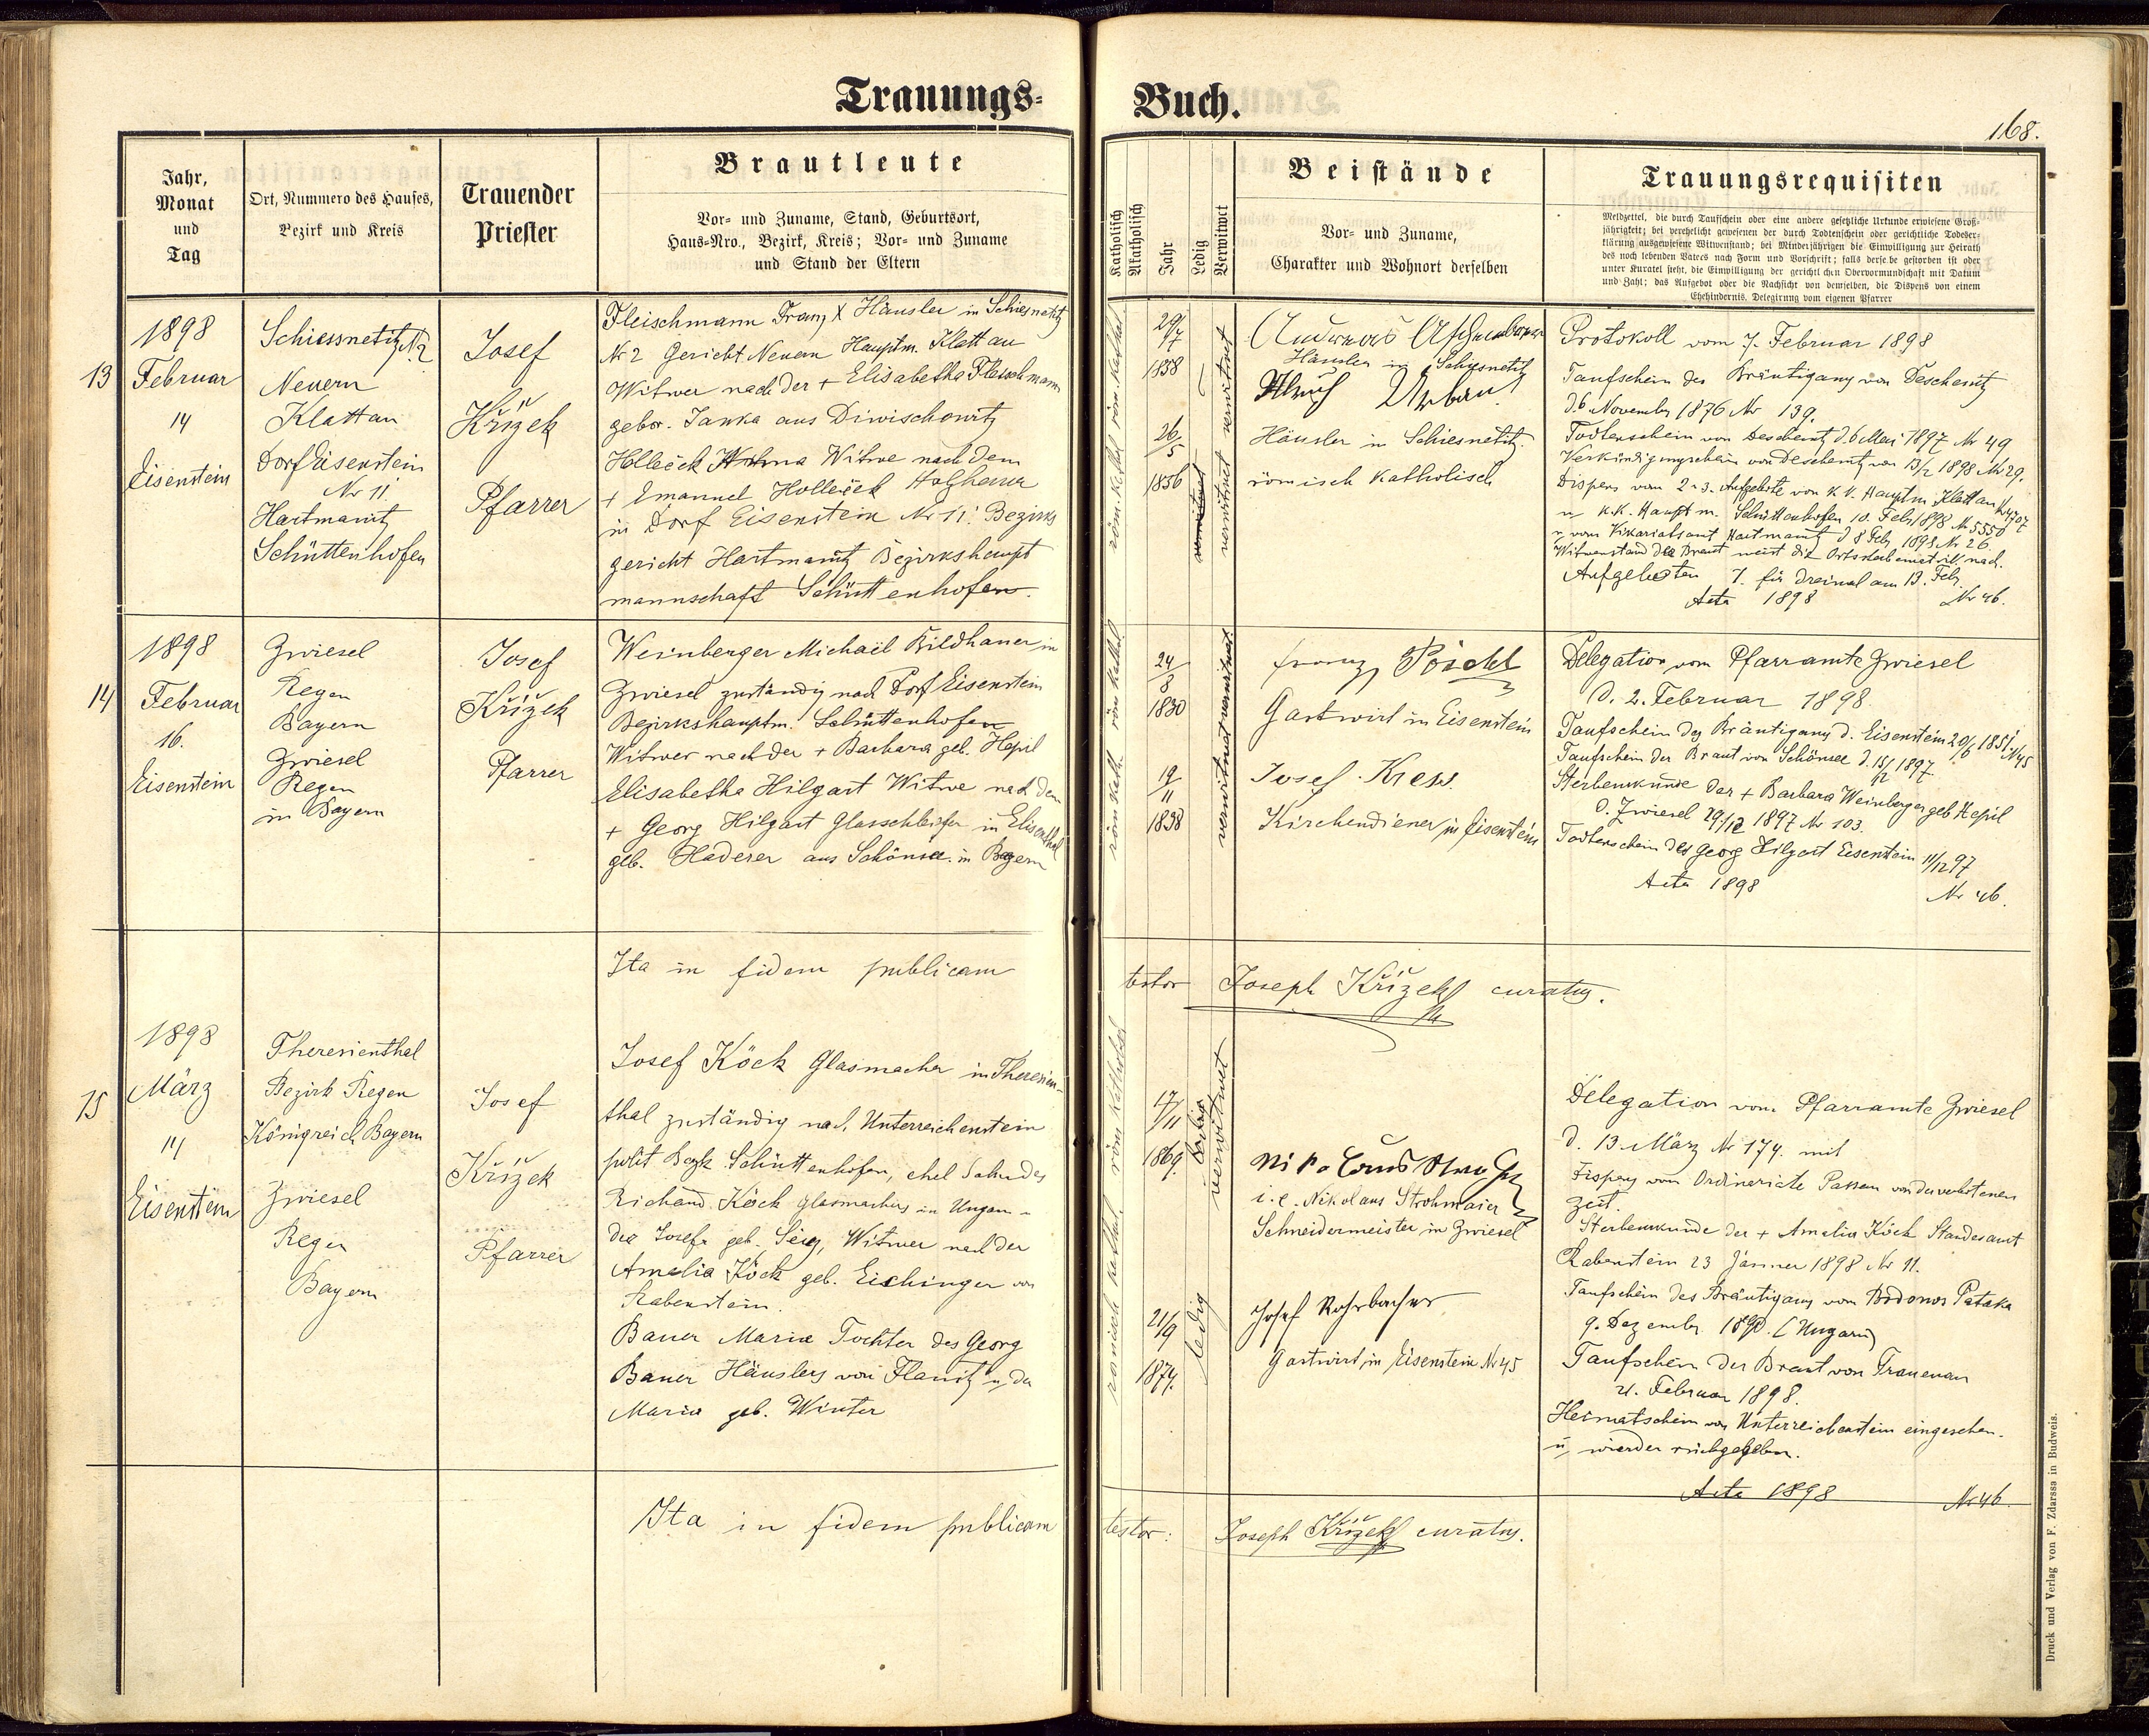 Trauungs-
Buch.
168.
Jahr,
Monat
und
Tag
Ort, Nummero des Hauses,
Bezirk und Kreis
Trauender
Priester
Brautleute
Vor- und Zuname, Stand, Geburtsort,
Haus-Nro., Bezirk, Kreis; Vor- und Zuname
und Stand der Eltern
Katholisch
Akatholisch
Jahr
Ledig
Verwitwet
Beistände
Vor- und Zuname,
Charakter und Wohnort derselben
Trauungsrequisiten
Meldzettel, die durch Taufschein oder eine andere gesetzliche Urkunde erwiesene Groß-
jährigkeit; bei verehelicht gewesenen der durch Todtenschein oder gerichtliche Todeser-
klärung ausgewiesene Witwenstand; bei Minderjährigen die Einwilligung zur Heirath
des noch lebenden Vaters nach Form und Vorschrift; falls derselbe gestorben ist oder
unter Kuratel steht, die Einwilligung der gerichtlichen Obervormundschaft mit Datum
und Zahl; das Aufgebot oder die Nachsicht von demselben, die Dispens von einem
Ehehindernis, Delegirung vom eigenen Pfarrer
13
1898
Februar
14
Eisenstein
Schiessnetitz N 2
Neuern
Klattau
Dorf Eisenstein
Nr 11
Hartmanitz
Schüttenhofen
Josef
Křížek
Pfarrer
Fleischmann Franz X Häusler in Schiesnetitz
Nr 2 Gericht Neuern Hauptm. Klattau
Witwer nach der + Elisabetha Fleischmann
gebor. Janka aus Diwischowitz
Holleček Witwe nach dem
+ Emanuel Holleček Holzhauer
in Dorf Eisenstein Nr 11. Bezirks
gericht Hartmanitz Bezirkshaupt
mannschaft Schüttenhofen.
röm. kathol. röm. kathol.
29/7
1838
26/5
1856
verwitwet verwitwet
Andreas
Häusler in Schiesnetitz
Urban
Häusler in Schiesnetitz.
römisch katholisch
Protokoll vom 7. Februar 1898
Taufschein des Bräutigams von Deschenitz
d. 6 November 1876 Nr 139.
Todtenschein von Deschenitz d. 6 Mai 1897 Nr 49
Verkündigungschein von Deschenitz von 13/2 1898 Nr 29.
Dispens vom 2 u 3. Aufgebote von k. k. Hauptm Klattau Nr 4707
u k.k. Hauptm. Schüttenhofen 10. Feb 1898 Nr 5550
u vom Vikariatsamt Hartmanitz d 8 Feb 1898 Nr 26
Witwenstand der Braut weist die Ortssterbematrik nach.
Aufgeboten 1. für dreimal am 13. Feb.
Acta 1898 Nr 46.
14
1898
Februar
16.
Eisenstein
Zwiesel
Regen
Bayern
Zwiesel
Regen
in Bayern
Josef
Křížek
Pfarrer
Weinberger Michael Bildhauer in
Zwiesel zuständig nach Dorf Eisenstein
Bezirkshauptm. Schüttenhofen
Witwer nach der + Barbara geb. Hepil
Elisabetha Hilgart Witwe nach dem
+ Georg Hilgart Glasschleifer in Elisenthal
geb. Haderer aus Schönsee in Bayern
röm kath. röm kathol
24/8
1830
19/11
1838
verwitwet verwitwet
Franz Pöschl
Gastwirt in Eisenstein
Josef Kress.
Kirchendiener in Eisenstein
Delegation vom Pfarramte Zwiesel
d. 2. Februar 1898.
Taufschein des Bräutigams d. Eisenstein 20/6 1851 N 45
Taufschein der Braut von Schönsee d. 15/12 1897
Sterbeurkunde der + Barbara Weinberger geb Hepil
d. Zwiesel 29/12 1897 Nr 103.
Todtenschein des Georg Hilgart Eisenstein 11/12 97
Acta 1898 Nr 46.
Ita in fidem publicam
testor Joseph Křížek curatus.
15
1898
März
14
Eisenstein
Theresienthal
Bezirk Regen
Königreich Bayern
Zwiesel
Regen
Bayern
Josef
Křížek
Pfarrer
Josef Köck Glasmacher in Theresien-
thal zuständig nach Unterreichenstein
polit Bezk. Schüttenhofen, ehel Sohn des
Richard Köck Glasmachers in Ungarn -
der Josefa geb. Witwer nach der
Amalia Köck geb. Eichinger von
Rabenstein.
Bauer Maria Tochter des Georg
Bauer Häuslers von Flanitz u der
Maria geb. Winter
römisch kathol. röm katholisch
17/11
1869
21/9
1874.
verwitwet
ledig
Nikolaus
i. e. Nikolaus Strohmaier
Schneidermeister in Zwiesel
Josef Rohrbacher
Gastwirt in Eisenstein Nr 45
Delegation vom Pfarramte Zwiesel
d. 13. März Nr 174. mit
Dispens vom Ordinariate Passau von der verbotenen
Zeit.
Sterbeurkunde der + Amalia Köck Standesamt
Rabenstein 23 Jänner 1898 Nr 11.
Taufschein des Bräutigams von Bodonos Pataka
9. Dezember 1890. (Ungarn)
Taufschein der Braut von Frauenau
Februar 1898.
Heimatschein von Unterreichenstein eingesehen.
u wieder rückgegeben.
Acta 1898 Nr 46.
Ita in fidem publicam
testor: Joseph Křížek curatus.
Druck und Verlag von F. Zdarssa in Budweis.